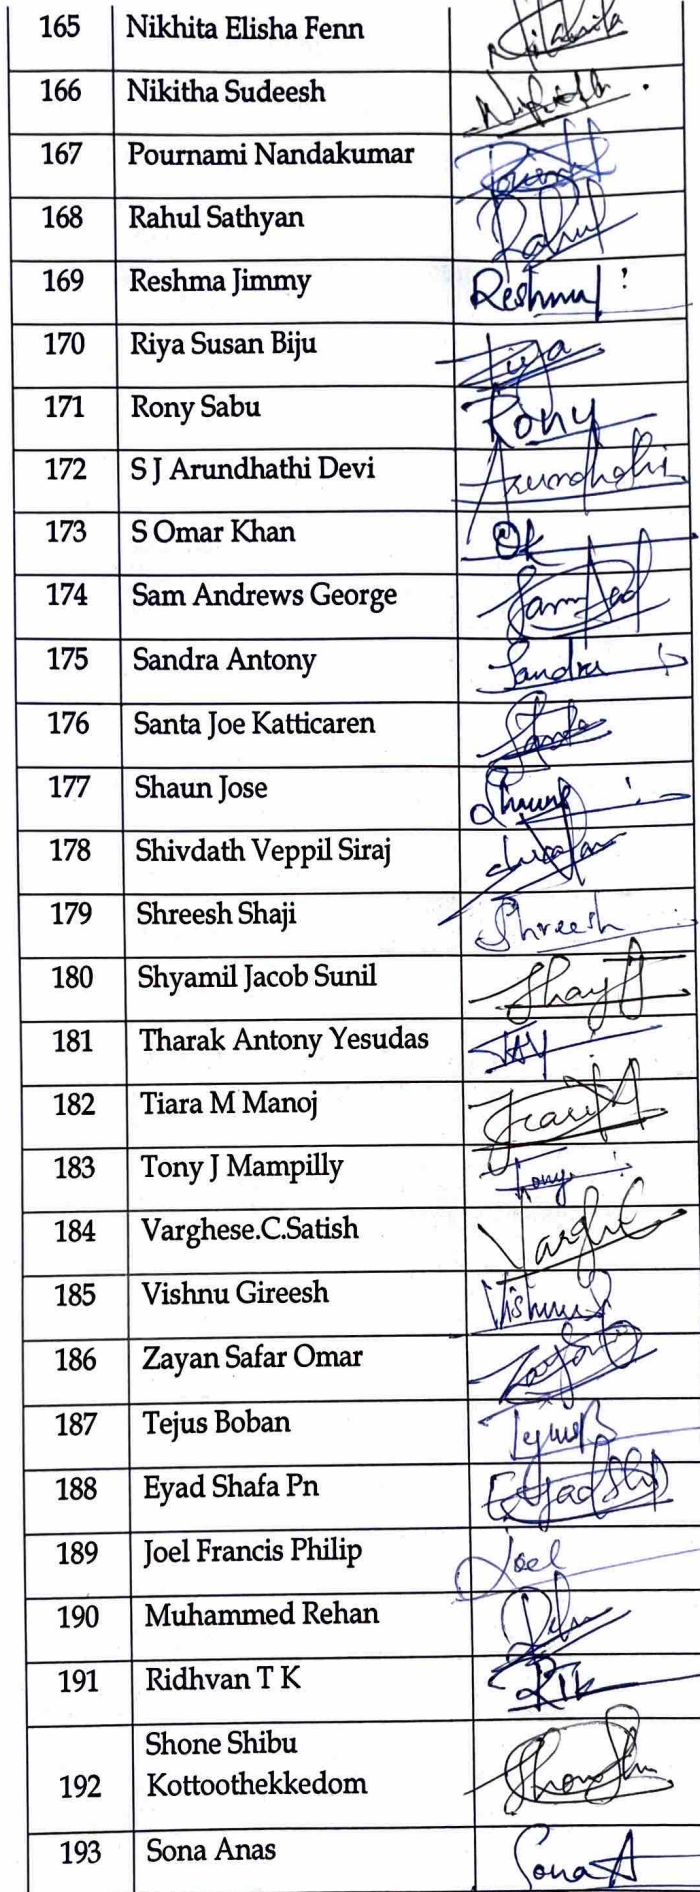 165 Nikhita Elisha Fenn Nikhita
166 Nikitha Sudeesh
167 Pournami Nandakumar
168 Rahul Sathyan Rahul
169 Reshma Jimmy Reshma
170 Riya Susan Biju Riya
171 Rony Sabu Rony
172 S J Arundhathi Devi Arundhathi
173 S Omar Khan OK
174 Sam Andrews George
175 Sandra Antony Sandra
176 Santa Joe Katticaren
177 Shaun Jose Shaun
178 Shivdath Veppil Siraj
179 Shreesh Shaji Shreesh
180 Shyamil Jacob Sunil
181 Tharak Antony Yesudas TAY
182 Tiara M Manoj
183 Tony J Mampilly Tony
184 Varghese.C.Satish
185 Vishnu Gireesh Vishnu
186 Zayan Safar Omar
187 Tejus Boban
188 Eyad Shafa Pn
189 Joel Francis Philip Joel
190 Muhammed Rehan
191 Ridhvan T K RTK
Shone Shibu
192 Kottoothekkedom
193 Sona Anas Sona A